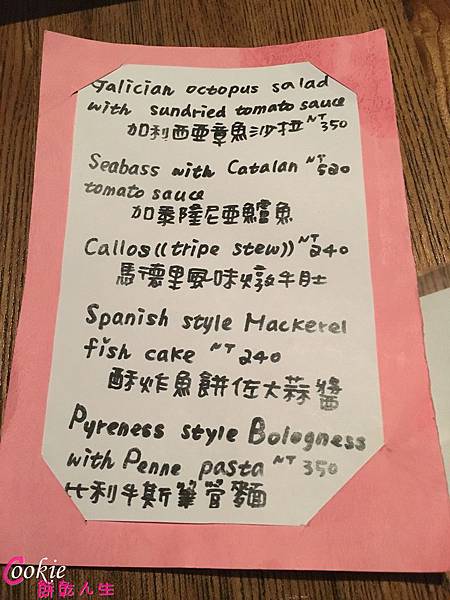 Galician octopus salad
with sundried tomato sauce
加利西亞章魚沙拉 NT 350
Seabass with Catalan NT 520
tomato sauce
加泰隆尼亞鱸魚
Callos((tripe stew)) NT 240
馬德里風味燉牛肚
Spanish style Mackerel
fish cake NT 240
酥炸魚餅佐大蒜醬
Pyreness style Bologness
with Penne pasta NT 350
比利牛斯筆管麵
Cookie
餅乾人生